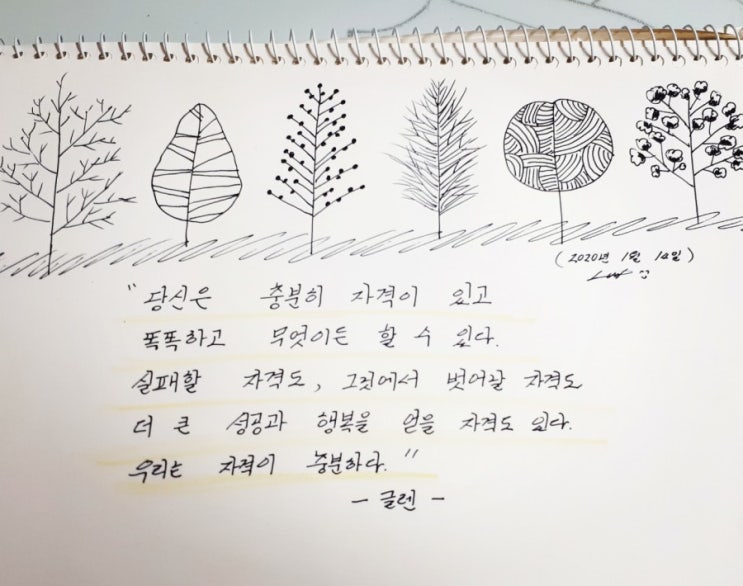 (2020년 1월 14일)
"당신은 충분히 자격이 있고
똑똑하고 무엇이든 할 수 있다.
실패할 자격도, 그것에서 벗어날 자격도
더 큰 성공과 행복을 얻을 자격도 있다.
우리는 자격이 충분하다."
- 글렌 -